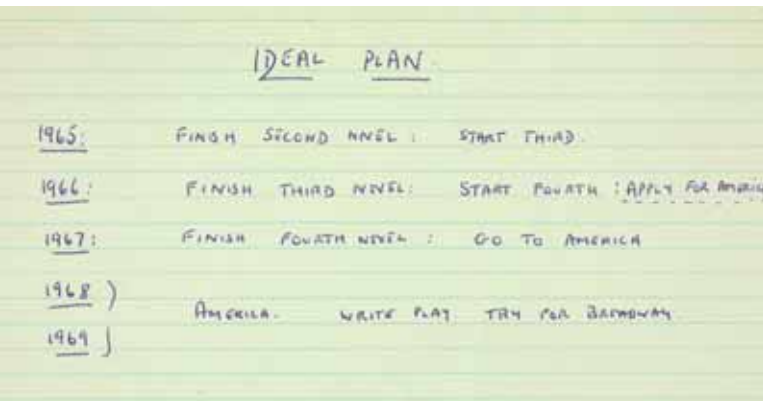 IDEAL PLAN.
1965: FINISH SECOND NOVEL : START THIRD.
1966: FINISH THIRD NOVEL: START FOURTH : APPLY FOR AMERICA
1967: FINISH FOURTH NOVEL : GO TO AMERICA
1968 )
AMERICA. WRITE PLAY TRY FOR BROADWAY
1969 )